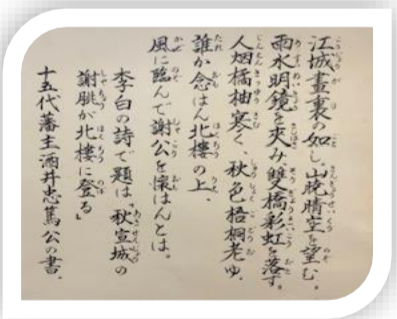 江城畫裏の如し。山晩晴空を望む。
雨水明鏡を夹み、雙橋彩虹を落す。
人烟橘柚寒く、秋色梧桐老ゆ。
誰か念はん北樓の上、
風に臨んで謝公を懐はんとは。
李白の詩で題は「秋宣城の
謝朓が北樓に登る」
十五代藩主酒井忠篤公の書。